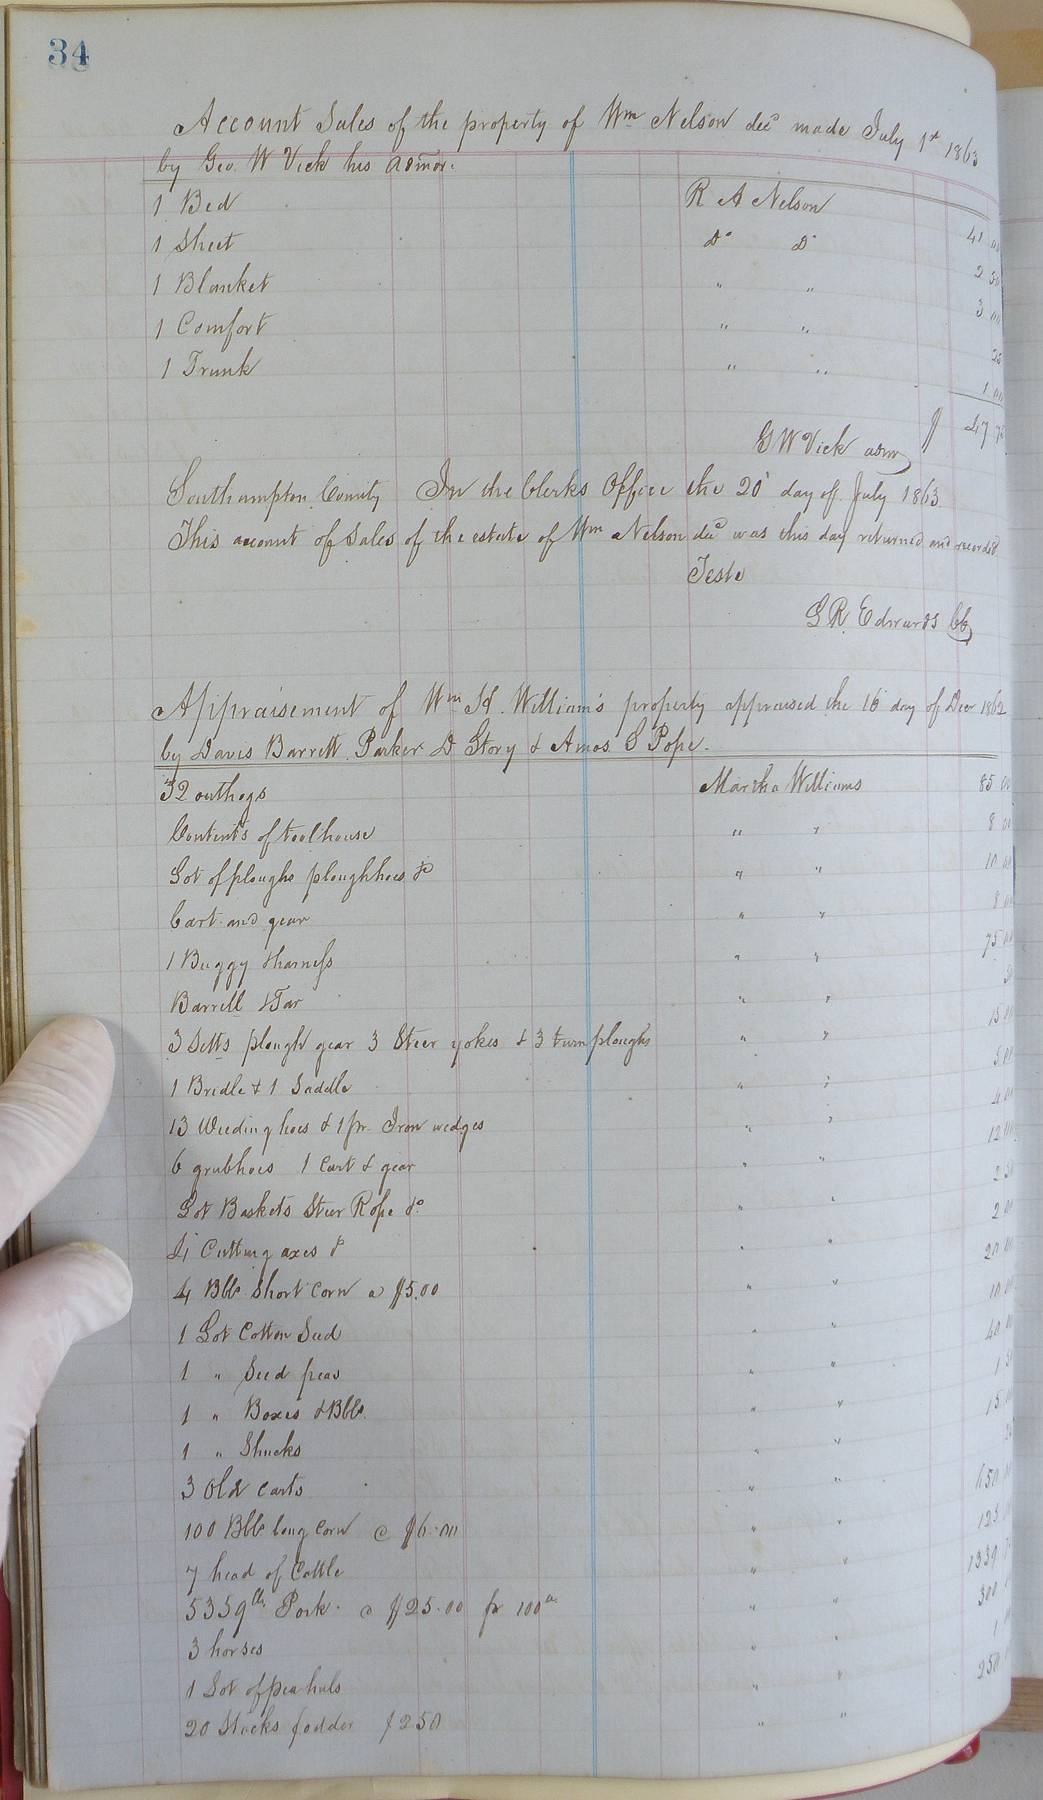 34
Account Sales of the property of Wm Nelson decd made July 1st 1863
by Geo. W Vick his admor.
1 Bed R A Nelson 41 00
1 Sheet Do Do 2 50
1 Blanket " " 3 00
1 Comfort " " 25
1 Trunk " " 1 00
$ 47 75
G W Vick admr
Southampton County In the Clerks Office the 20' day of July 1863.
This account of Sales of the estate of Wm Nelson decd was this day returned and recorded
Teste
G R. Edwards CC
Appraisement of Wm H. William's property appraised the 16 day of Decr 1862
by Davis Barrett. Parker D Story & Amos S Pope.
32 outhogs Martha Williams 85 00
Contents of toolhouse " " 8 00
Lot of ploughs ploughhoes &c " " 10 00
Cart and gear " " 8 00
1 Buggy & harness " " 75 00
Barrell & Tar " " 50
3 Setts plough gear 3 Steer yokes & 3 turnploughs " " 15 00
1 Bridle & 1 Saddle " " 5 00
13 Weeding hoes & 1 pr. Iron wedges " " 4 00
6 grubhoes 1 Cart & gear " " 12 00
Lot Baskets Steer Rope &c " " 2 50
4 Cutting axes & " " 2 00
4 Bbls Short Corn a $5.00 " " 20 00
1 Lot Cotton Seed " " 10 00
1 " Seed peas " " 40 00
1 " Boxes & Bbls. " " 1 50
1 " Shucks " " 15 00
3 Old Carts " "
100 Bbls long Corn @ $6.00 " " 650 00
7 head of Cattle " " 125 00
5359 lbs Pork. @ $25.00 pr 100 lbs " " 1339
3 horses " " 300
1 Lot of peahuls " " 1
20 Stacks fodder $250 " " 250